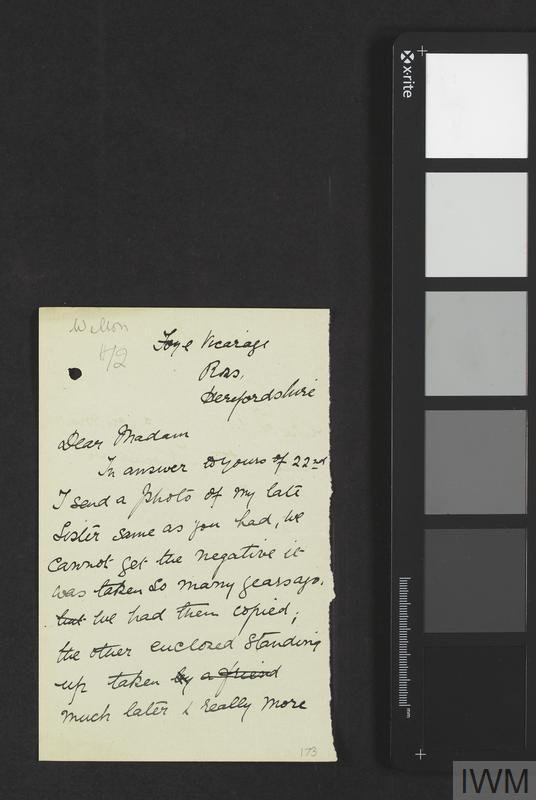 Wilson
H/2
Foye Vicarage
Ross,
Herefordshire
Dear Madam
In answer to yours of 22nd
I send a photo of my late
Sister same as you had, we
cannot get the negative it
was taken so many years ago.
but we had them copied;
the other enclosed standing
up taken by a friend
much later & really more
173
x-rite
mm
IWM